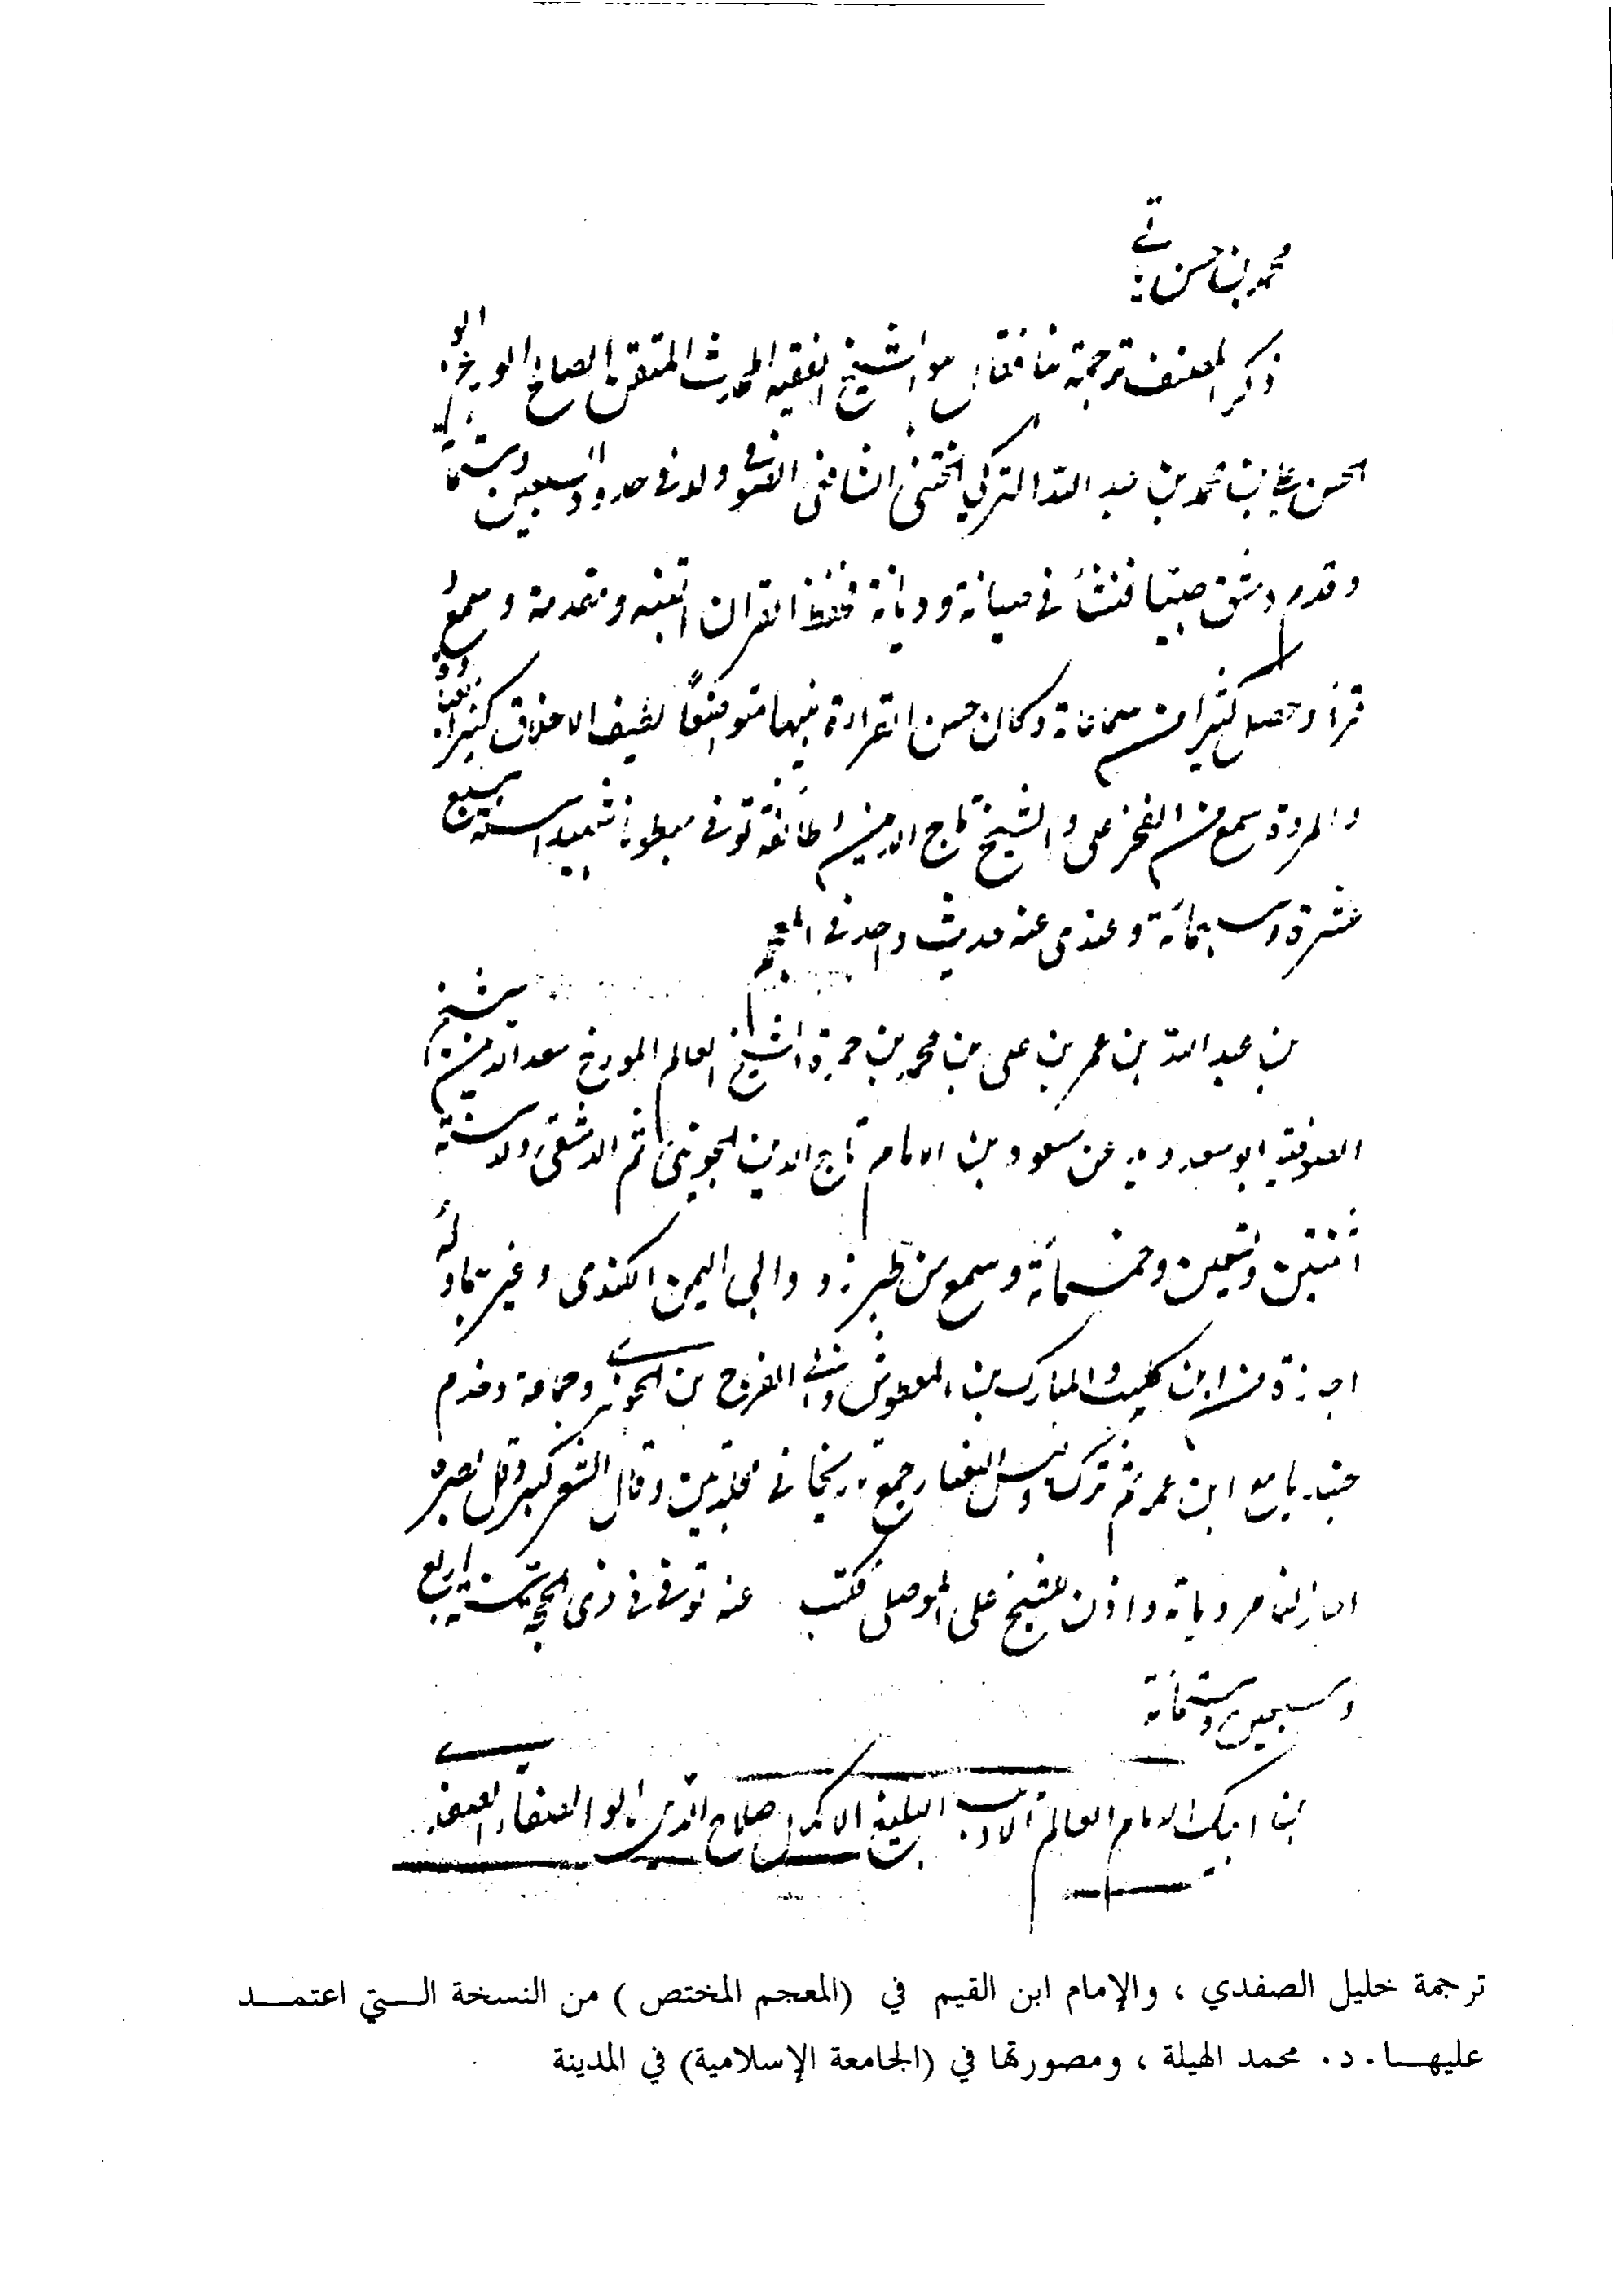 محمد بن حسن
ذكر المصنف ترجمة فقال هو الشيخ الفقيه المحدث المتقن الصالح الورع ابو
الحسن علي بن محمد بن عبد الله التركي الختني الشافعي الصوفي ولد في حدود السبعين وستمائة
وقدم دمشق صبيا فنشأ في صيانة وديانة فحفظ القران التنبيه ومقدمة وسمع
قرأ وحصل كثيرا من سماعاته وكان حسن القراءة نبيها متواضعا لطيف الاخلاق كثير
والمروة سمع من الفخر علي والشيخ تاج الدين وطائفة توفي مبطونا شهيدا سنة سبع
عشرة وسبعمائة وعندي عنه حديث واحد في المعجم
بن عبد الله بن عمر بن علي بن محمد بن حمزة الشيخ العالم المورخ سعد الدين شيخ
الصوفية ابو سعد ويدعى مسعود بن الامام تاج الدين الجويني ثم الدمشقي ولد سنة
اثنتين وتسعين وخمسمائة وسمع من طبرزد وابي اليمن الكندي وغير
اجازة من ابن كليب والمبارك بن المعطوش وابي الفرج بن الجوزي وجماعة وخدم
ابن عمه ثم ترك ولبس البقيار جمع تاريخا في مجلدين وقال الشعر كبر وقل بصره
اجاز لنا مروياته واذن للشيخ علي الموصلي فكتب عنه توفي في ذي الحجة سنة اربع
وسبعين وستمائة
بن ايبك الامام العالم الاديب البليغ الاكمل صلاح الدين ابو الصفاء الصفدي
ترجمة خليل الصفدي ، والإمام ابن القيم في (المعجم المختص ) من النسخة الـــتي اعتمـــد
عليهـــا . د . محمد الهيلة ، ومصورتها في (الجامعة الإسلامية) في المدينة